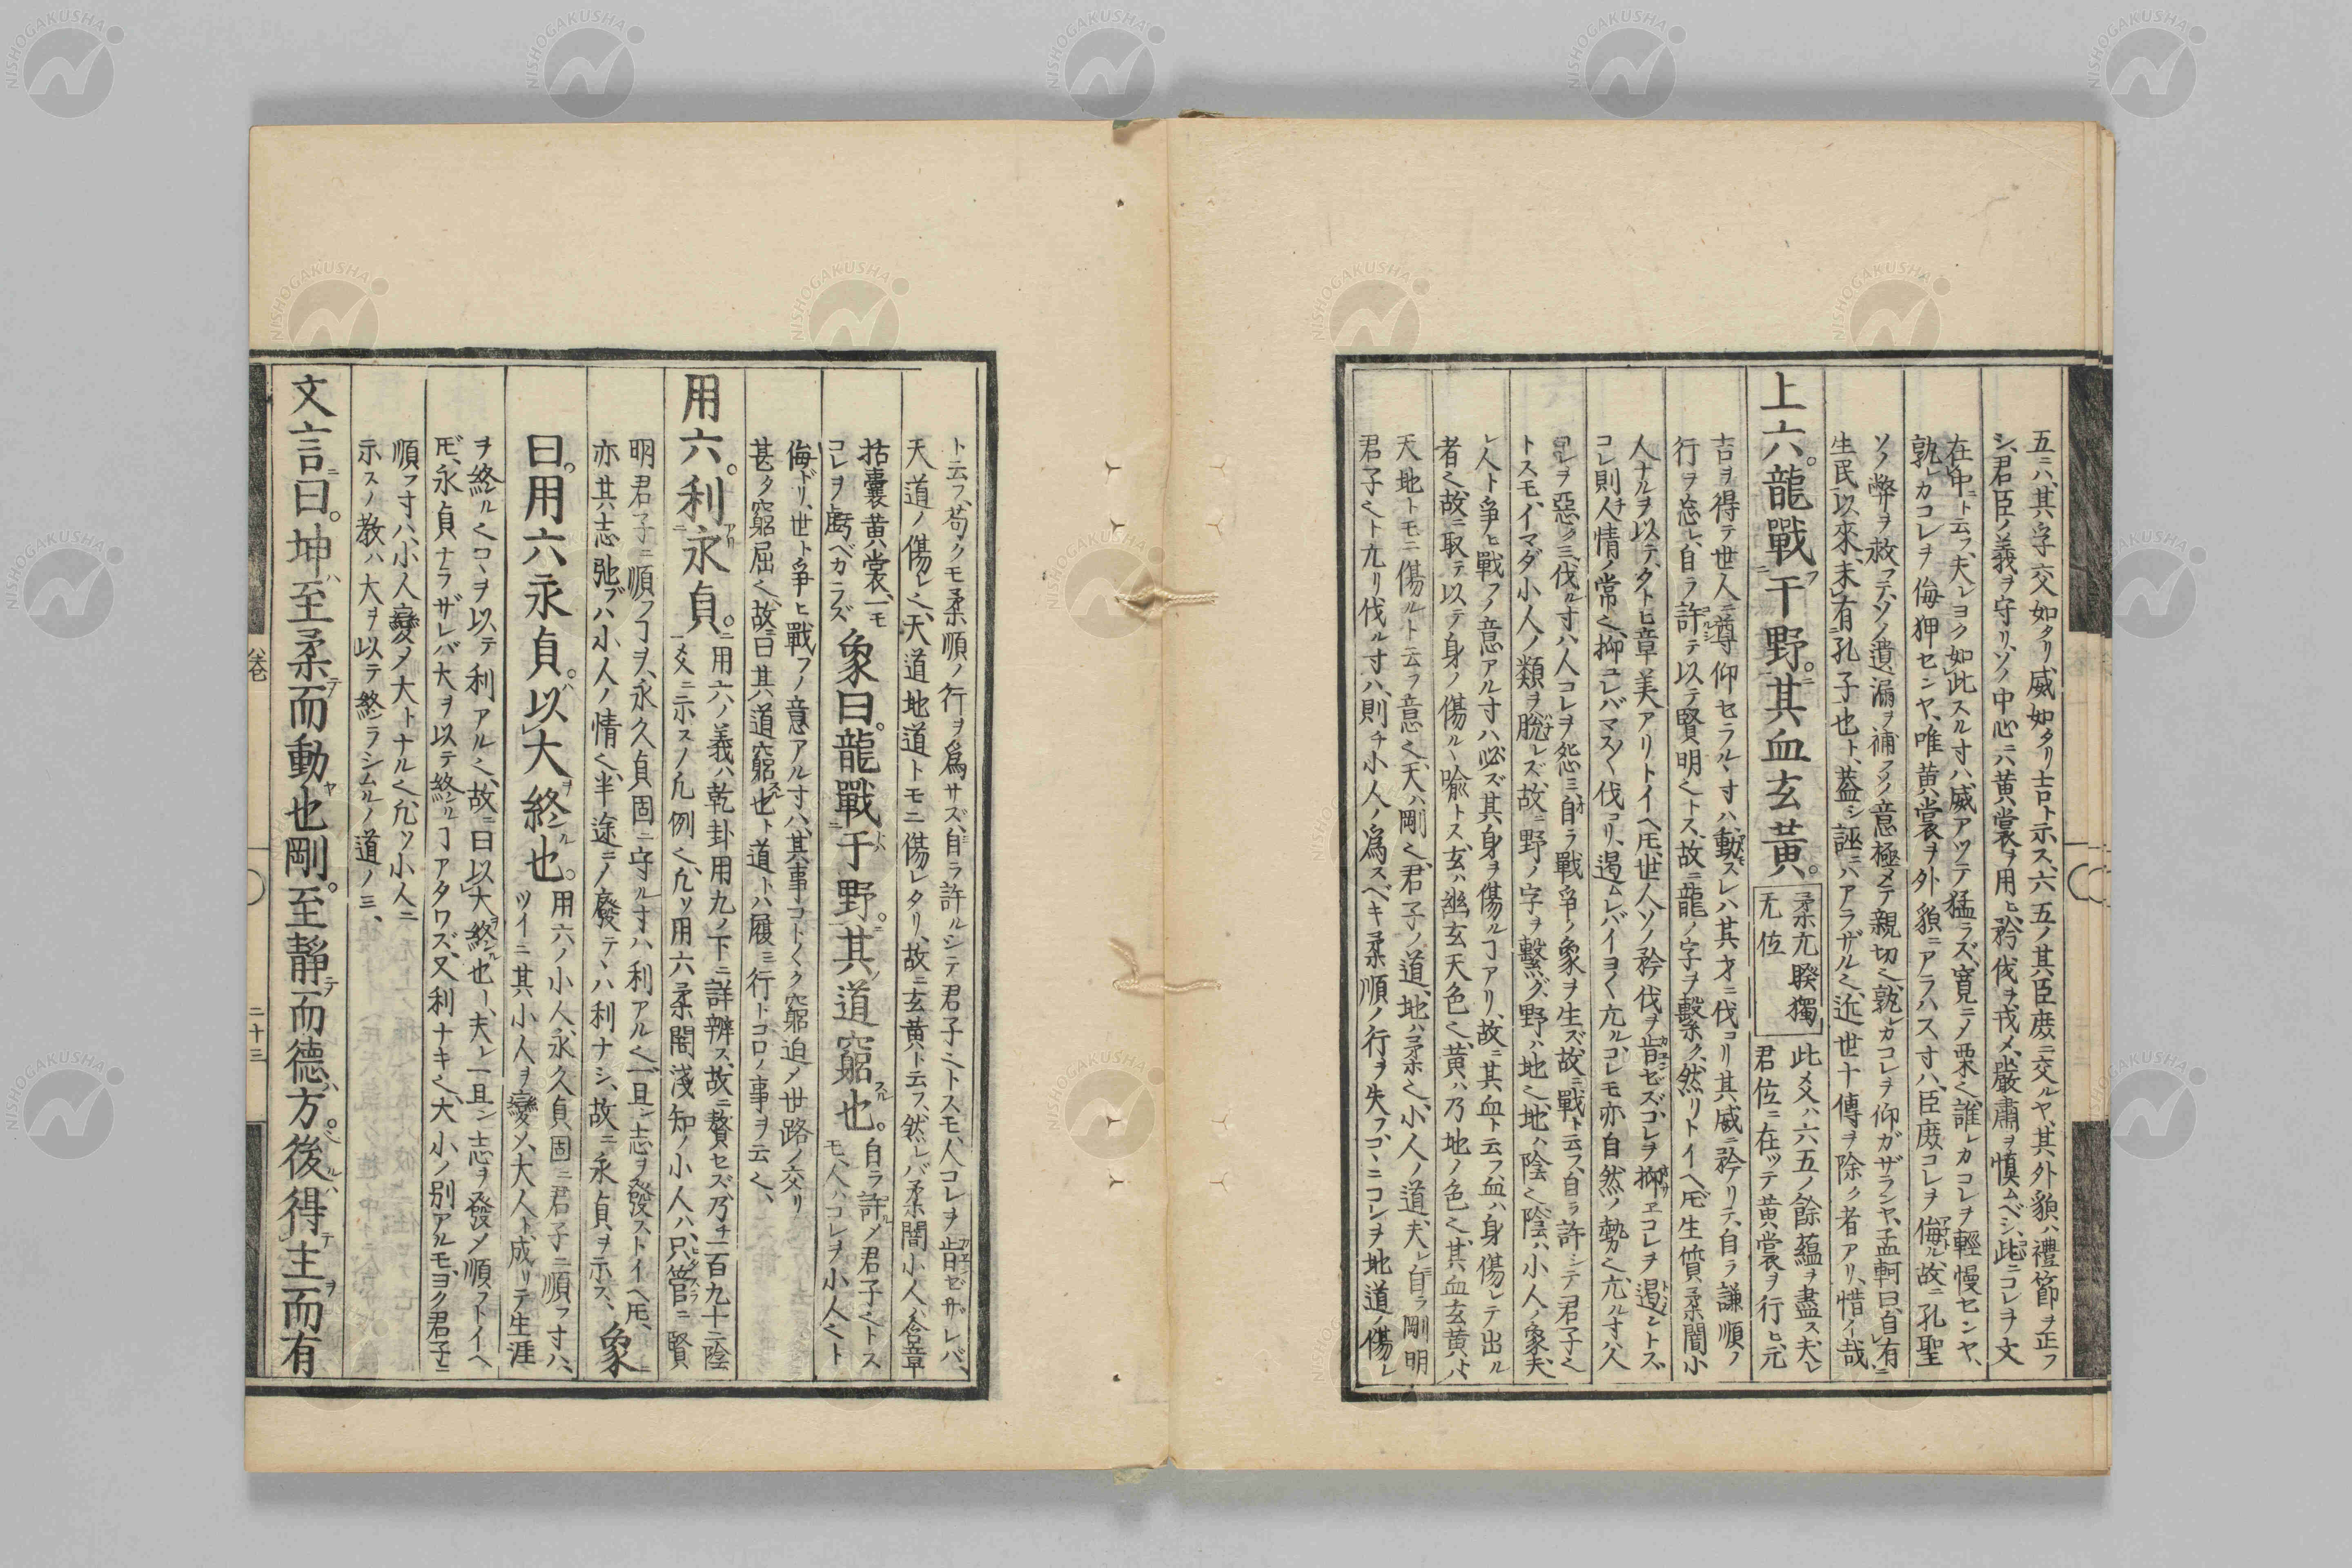 五ニハ、其孚交如タリ威如タリ吉ト示ス、六五ノ其臣庶ニ交ルヤ、其外貌ハ禮節ヲ正フ
シ、君臣ノ義ヲ守リ、ソノ中心ニハ黄裳ヲ用ヒ、矜伐ヲ戒メ、嚴肅ヲ愼ムベシ、此ニコレヲ文
在中ト云フ、夫レヨク如此スル寸ハ、威アツテ猛ラズ、寛ニノ栗之、誰レカコレヲ輕慢センヤ、
孰レカコレヲ侮狎センヤ、唯黄裳ヲ外貌ニアラハス寸ハ、臣庶コレヲ侮ル、故ニ孔聖
ソノ弊ヲ救フテ、ソノ遺漏ヲ補フノ意極メテ親切之、孰レカコレヲ仰ガザランヤ、孟軻曰、自有
生民以來、未有孔子也ト、蓋シ誣ニハアラザル之、近世十傳ヲ除ク者アリ、惜イ哉
上六。龍戰于野。其血玄黄。
柔亢睽獨
无位
此爻ハ六五ノ餘蘊ヲ盡ス、夫レ
君位ニ在ツテ黄裳ヲ行ヒ、元
吉ヲ得テ世人ニ尊仰セラルヽ寸ハ、動スレハ其才ニ伐コリ其威ニ矜リテ、自ラ謙順ノ
行ヲ忘レ、自ラ許テ以テ賢明之トス、故ニ龍ノ字ヲ繫ク、然リトイヘ𪜈生質柔闇小
人ナルヲ以テ、タトヒ章美アリトイヘ𪜈、世人ソノ矜伐ヲ肯ゼズ、コレヲ抑ヱコレヲ遏ントス、
コレ則人情ノ常之、抑ユレバマス〱伐コリ、遏ムレバイヨ〱亢ル、コレモ亦自然ノ勢之、亢ル寸ハ人
コレヲ惡クミ、伐ル寸ハ人コレヲ怨ミ、自ラ戰爭ノ象ヲ生ズ、故ニ戰ト云フ、自ラ許シテ君子之
トスモ、イマダ小人ノ類ヲ脫レズ、故ニ野ノ字ヲ繫グ、野ハ地之、地ハ陰之、陰ハ小人ノ象、夫
レ人ト爭ヒ戰フノ意アル寸ハ必ズ其身ヲ傷ルヿアリ、故ニ其血ト云フ、血ハ身傷レテ出ル
者之、故ニ取テ以テ身ノ傷ルヽ喩トス、玄ハ幽玄天色之、黄ハ乃地ノ色之、其血玄黄ハ、
天地トモニ傷ルト云ラ意之、天ハ剛之、君子ノ道、地ハ柔之、小人ノ道、夫レ自ラ剛明
君子之ト九リ伐ル寸ハ、則チ小人ノ爲スベキ柔順ノ行ヲ失フ、コヽニコレヲ地道ノ傷レ
ト云フ、苟クモ柔順ノ行ヲ爲サズ、自ラ許ルシテ君子之トスモ、人コレヲ肯ゼザレバ、
天道ノ傷レ之、天道地道トモニ傷レタリ、故ニ玄黄ト云フ、然レバ柔闇小人、含章
括囊黄裳、一モ
コレヲ虧ベカラズ
象曰。龍戰于野。其道窮也。
自ラ許ルノ君子之トス
モ、人ハコレヲ小人之ト
侮ドリ、世ト爭ヒ戰フノ意アル寸ハ、其事コト〱ク窮迫ノ世路ノ交リ
甚タ窮屈之、故曰其道窮也ト、道トハ履ミ行トコロノ事ヲ云之、
用六。利永貞。
用六ノ義ハ乾卦用九ノ下ニ詳辨ス、故ニ贅セズ、乃チ一百九十二陰
爻ニ示スノ凡例之、凡ソ用六柔闇淺知ノ小人ハ、只管ニ賢
明君子ニ順フヿヲ、永久貞固ニ守ル寸ハ、利アル之、一旦ン志ヲ發ストイヘ𪜈、
亦其志弛ブハ小人ノ情之、半途ニノ廢テヽハ利ナシ、故ニ永貞ヲ示ス、
象
曰。用六永貞。以大終也。
用六ノ小人、永久貞固ニ君子ニ順フ寸ハ、
ツイニ其小人ヲ變メ、大人ト成リテ生涯
ヲ終ル之、コヽヲ以テ利アル之、故ニ曰以大終也ト、夫レ一旦ン志ヲ發メ順フトイヘ
𪜈、永貞ナラザレバ大ヲ以テ終ルヿアタワズ、又利ナキ之、大小ノ別アルモ、ヨク君子ニ
順フ寸ハ、小人變ノ大トナル之、凡ソ小人ニ
示スノ教ハ大ヲ以テ終ラシムルノ道ノミ、
文言曰。坤至柔而動也剛。至靜而德方。後得主而有
卷一
二十三